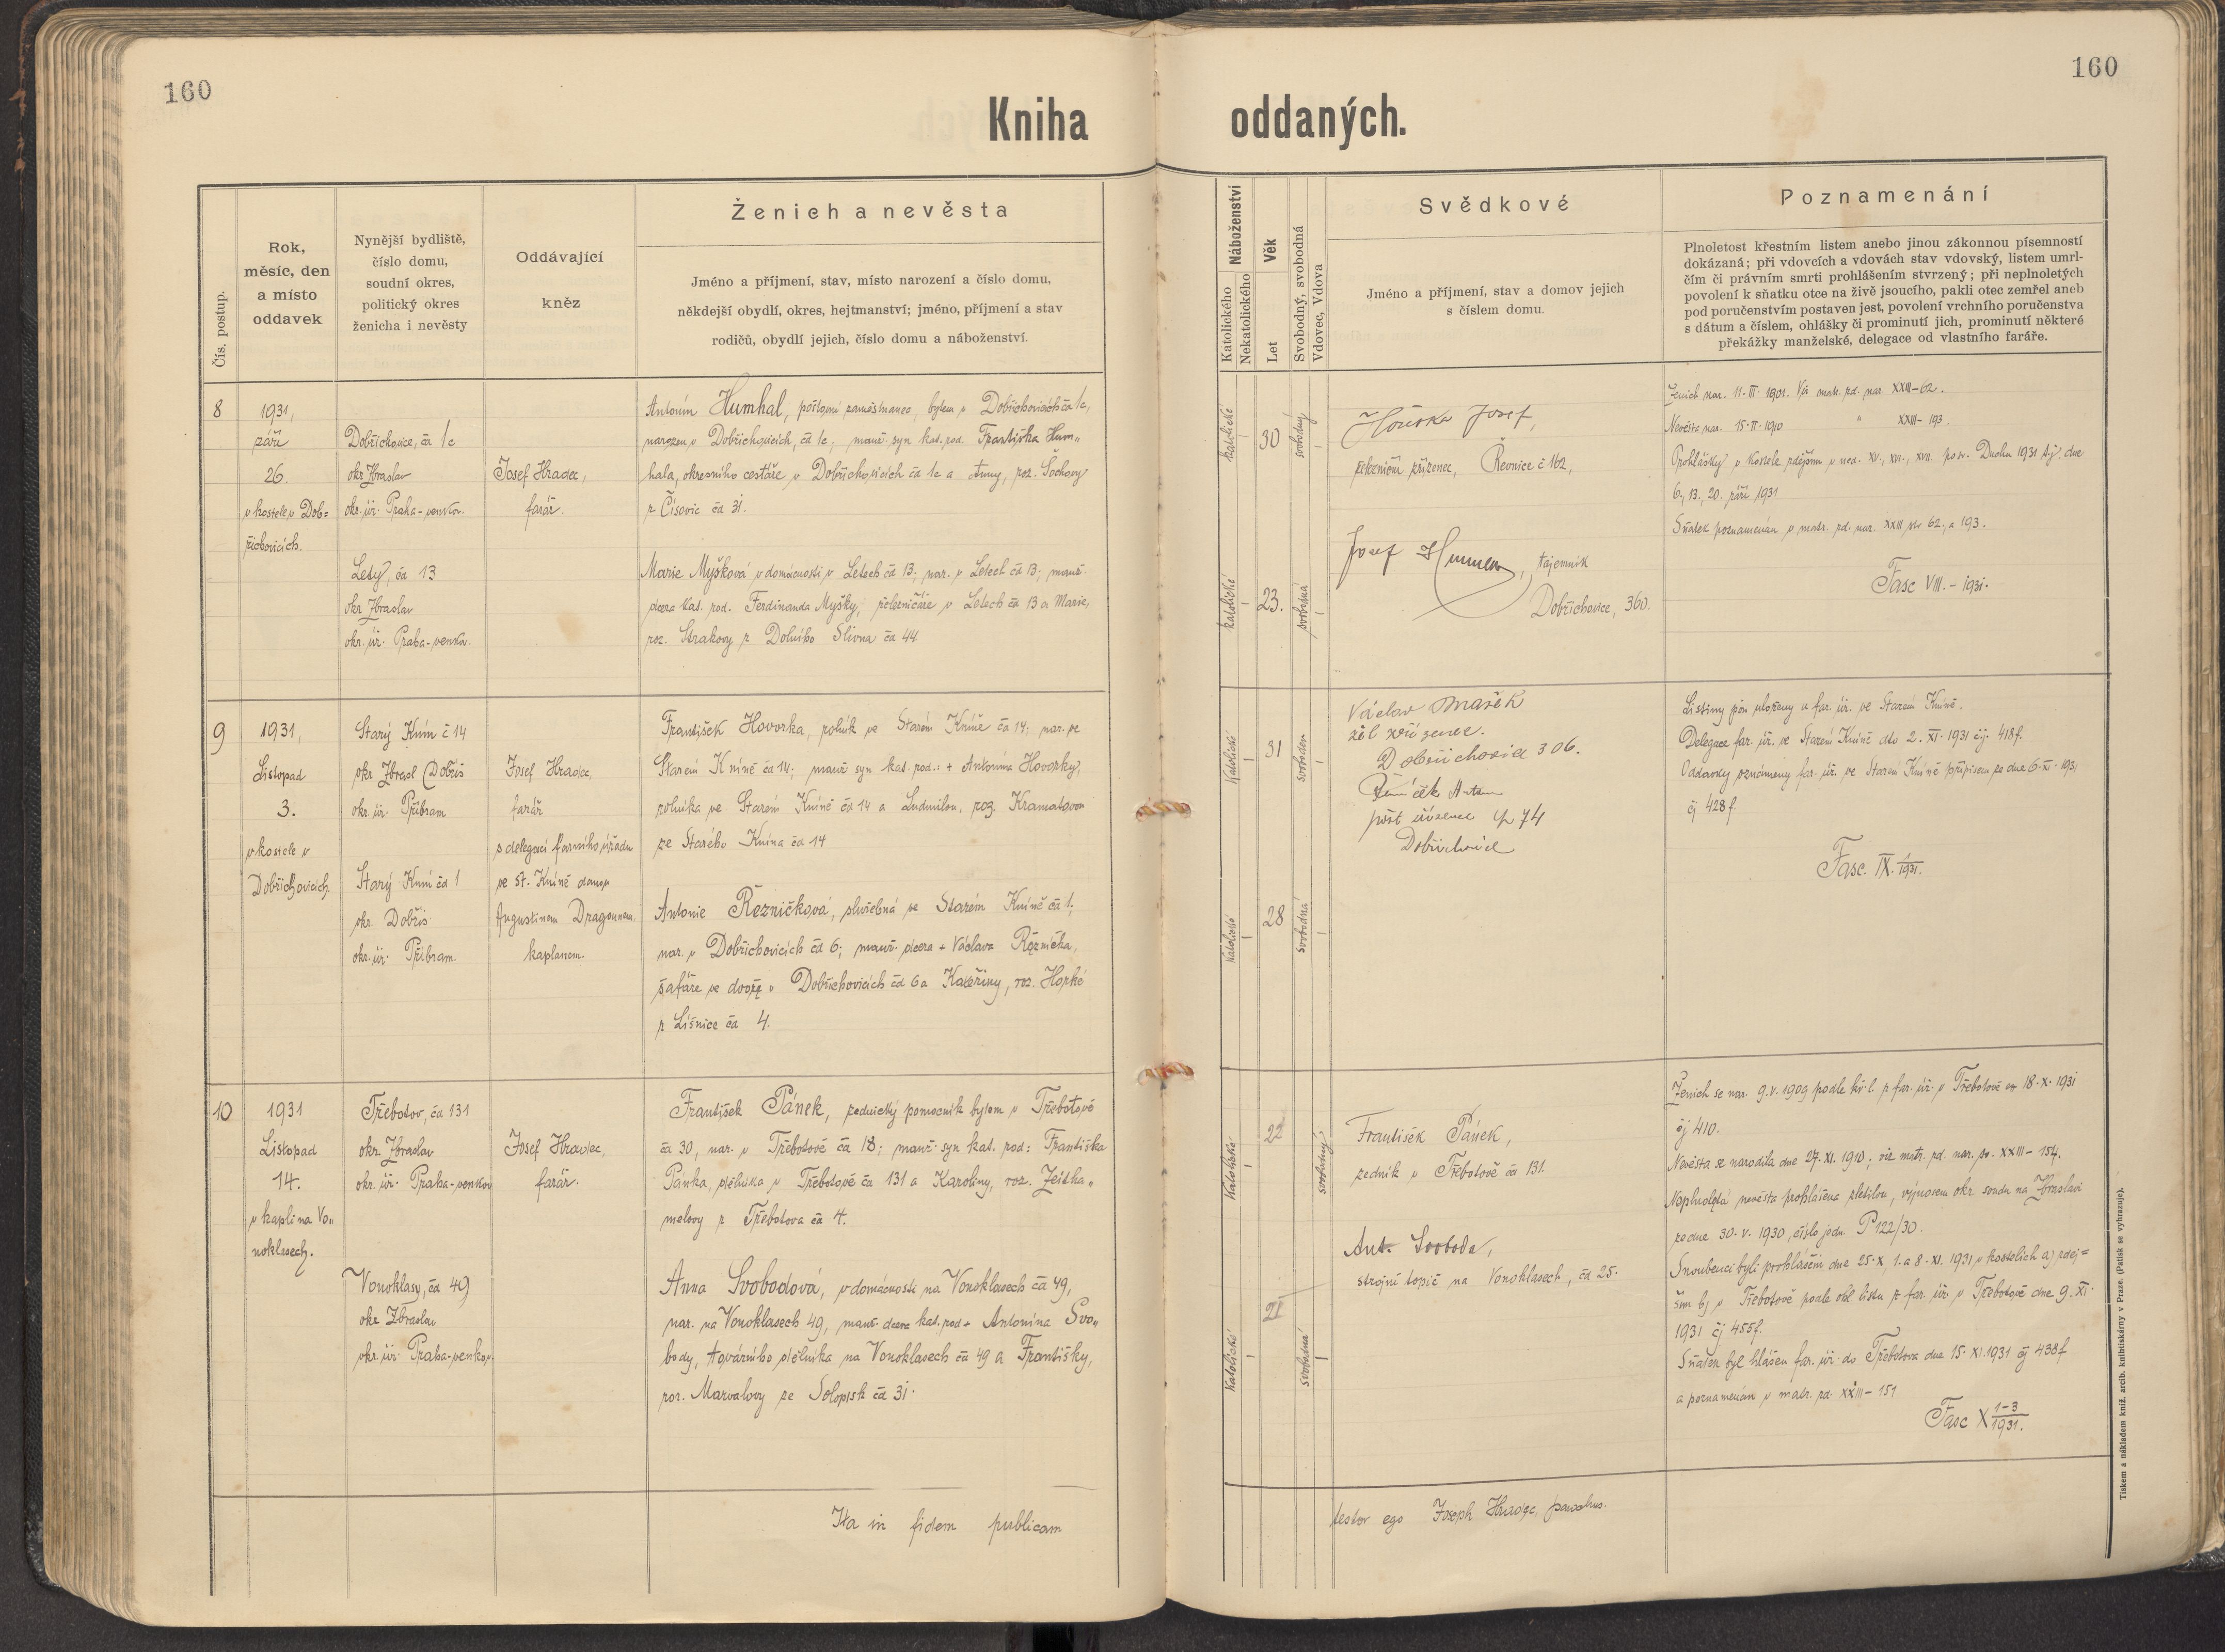 160
160
Kniha oddaných.
Čís. postup.
Rok,
měsíc, den
a místo
oddavek
Nynější bydliště,
číslo domu,
soudní okres,
politický okres
ženicha i nevěsty
Oddávající
kněz
Ženich a nevěsta
Jméno a příjmení, stav, místo narození a číslo domu,
někdejší obydlí, okres, hejtmanství; jméno, příjmení a stav
rodičů, obydlí jejich, číslo domu a náboženství.
Náboženství
Katolického
Nekatolického
Věk
Let
Svobodný, svobodná
Vdovec, Vdova
Svědkové
Jméno a příjmení, stav a domov jejich
s číslem domu.
Poznamenání
Plnoletost křestním listem anebo jinou zákonnou písemností
dokázaná; při vdovcích a vdovách stav vdovský, listem umrl-
čím či právním smrti prohlášením stvrzený; při neplnoletých
povolení k sňatku otce na živě jsoucího, pakli otec zemřel aneb
pod poručenstvím postaven jest, povolení vrchního poručenstva
s dátum a číslem, ohlášky či prominutí jich, prominutí některé
překážky manželské, delegace od vlastního faráře.
8
1931,
září
26.
v kostele v Dob=
řichovicích.
Dobřichovice, čd 1c
okr Zbraslav
okr. úř. Praha-venkov.
Lety, čd 13
okr Zbraslav
okr. úř. Praha-venkov.
Josef Hradec,
farář.
Antonín Humhal, poštovní zaměstnanec, bytem v Dobřichovicích čd 1c,
narozen v Dobřichovicích, čd 1c; manž. syn kat. rod. Františka Hum„
hala, okresního cestáře v Dobřichovicích čd 1c a Anny, roz. Šochovy
z Čisovic čd 31.
Marie Myšková v domácnosti v Letech čd 13; nar. v Letech čd 13; manž.
dcera kat. rod. Ferdinanda Myšky, železničáře v Letech čd 13 a Marie,
roz. Strakovy z Dolního Slivna čd 44.
katolické
30
svobodný
katolické
23.
svobodná
Josef,
železniční zřízenec, Řevnice č 162,
Josef
, tajemník
Dobřichovice, 360.
Ženich nar. 11. III. 1901. Viz matr. zd. nar XXIII-62.
Nevěsta nar. 15. II. 1910 " XXIII- 193.
Prohlášky v kostele zdejším v ned. XV., XVI., XVII. po sv. Duchu 1931 tj. dne
6., 13., 20. září 1931
Sňatek poznamenán v matr. zd. nar. XXIII str 62. a 193.
Fasc VIII. - 1931.
9
1931,
Listopad
3.
v kostele v
Dobřichovicích.
Starý Knín č 14
okr Zbrasl (Dobříš
okr. úř. Příbram
Starý Knín čd 1
okr. Dobříš
okr. úř. Příbram.
Josef Hradec,
farář
s delegací farního úřadu
ve St. Kníně danou
Augustinem Dragounem
kaplanem.
František Hovorka, rolník ve Starém Kníně čd 14; nar. ve
Starém Kníně čd 14; manž syn kat. rod.: + Antonína Hovorky,
rolníka ve Starém Kníně čd 14 a Ludmilou, roz. Kramatovou
ze Starého Knína čd 14
Antonie Řezníčková, služebná ve Starém Kníně čd 1;
nar. v Dobřichovicích čd 6; manž. dcera + Václava Řezníčka,
šafáře ve dvoře v Dobřichovicích čd 6 a Kateřiny, roz. Horké
z Líšnice čd 4.
Katolické
31
svoboden
katolické
28
svobodná
Václav Mařík
žel zřízenec.
Dobřichovice 306.
pošt zřízenec čp 74
Dobřichovice
Listiny jsou uloženy u far. úř. ve Starém Kníně.
Delegace far. úř. ve Starém Kníně dto 2. XI. 1931 čj. 418f.
Oddavky oznámeny far. úř. ve Starém Kníně přípisem ze dne 6. XI. 1931
čj 428f.
Fasc. IX. 1/1931.
10
1931
Listopad
14.
v kapli na Vo„
noklasech.
Třebotov, čd 131
okr Zbraslav
okr. úř. Praha-venkov
Vonoklasy, čd 49
okr Zbraslav
okr. úř. Praha-venkov.
Josef Hradec,
farář.
František Pánek, zednický pomocník bytem v Třebotově
čd 30, nar. v Třebotově čd 18; manž. syn kat. rod: Františka
Pánka, dělníka v Třebotově čd 131 a Karoliny, roz. Zeitha„
melovy z Třebotova čd 4.
Anna Svobodová, v domácnosti na Vonoklasech čd 49,
nar. na Vonoklasech 49, manž. dcera kat. rod + Antonína Svo„
body, továrního dělníka na Vonoklasech čd 49 a Františky,
roz. Marvalovy ze Solopisk čd 31.
Katolické
22
svobodný
katolické
21
svobodná
František Pánek,
zedník v Třebotově čd 131.
Ant. Svoboda,
strojní topič na Vonoklasech, čd 25.
Ženich se nar. 9. V. 1909 podle kř. l. z far. úř. v Třebotově 18. X. 1931
čj 410.
Nevěsta se narodila dne 27. XI. 1910; viz matr. zd. nar. sv. XXIII - 154.
Neplnoletá nevěsta prohlášena zletilou, výnosem okr. soudu na Zbraslavi
ze dne 30. V. 1930, číslo jedn. P 122/30.
Snoubenci byli prohlášeni dne 25. X, 1. a 8. XI. 1931 v kostelích a) zdej=
ším b) v Třebotově podle ohl. listu z far. úř v Třebotově dne 9. XI.
1931 čj 455f.
Sňatek byl hlášen far. úř. do Třebotova dne 15. XI. 1931 čj 438f
a poznamenán v matr. zd. XXIII - 151
Fasc X 1-3/1931.
Ita in fidem publicam testor ego Joseph Hradec, parochus.
Tiskem a nákladem kníž. arcib. knihtiskárny v Praze. (Patisk se vyhrazuje).